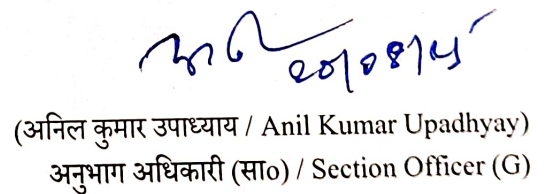 (अनिल कुमार उपाध्याय / Anil Kumar Upadhyay)
अनुभाग अधिकारी (सा०) / Section Officer (G)